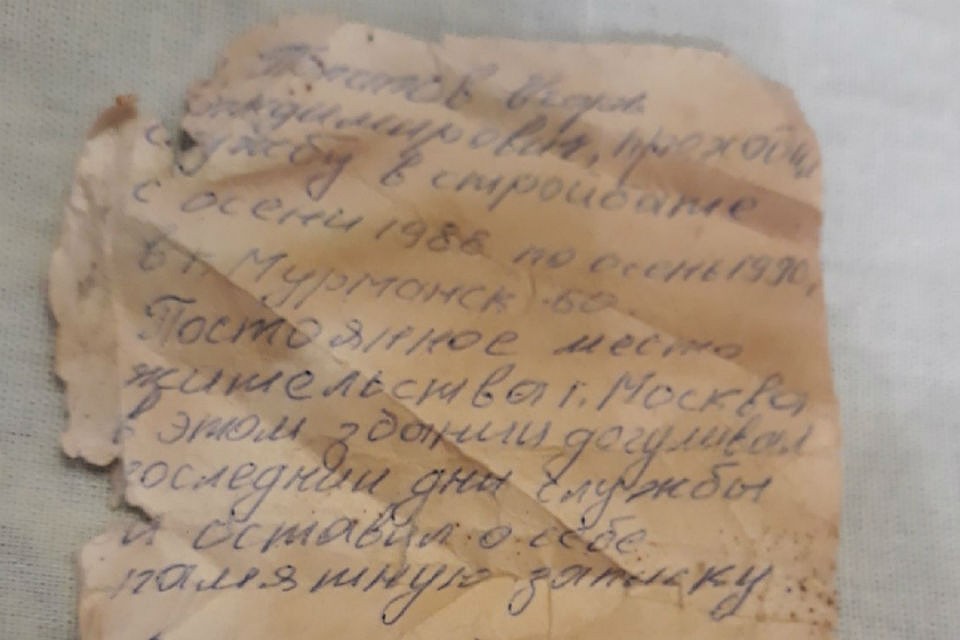 Владимирович, проходил
службу в стройбате
с осени 1988 по осень 1990,
в г. Мурманск-60.
Постоянное место
жительства г. Москва
в этом здании догуливал
последнии дни службы
и оставил о себе
памятную записку